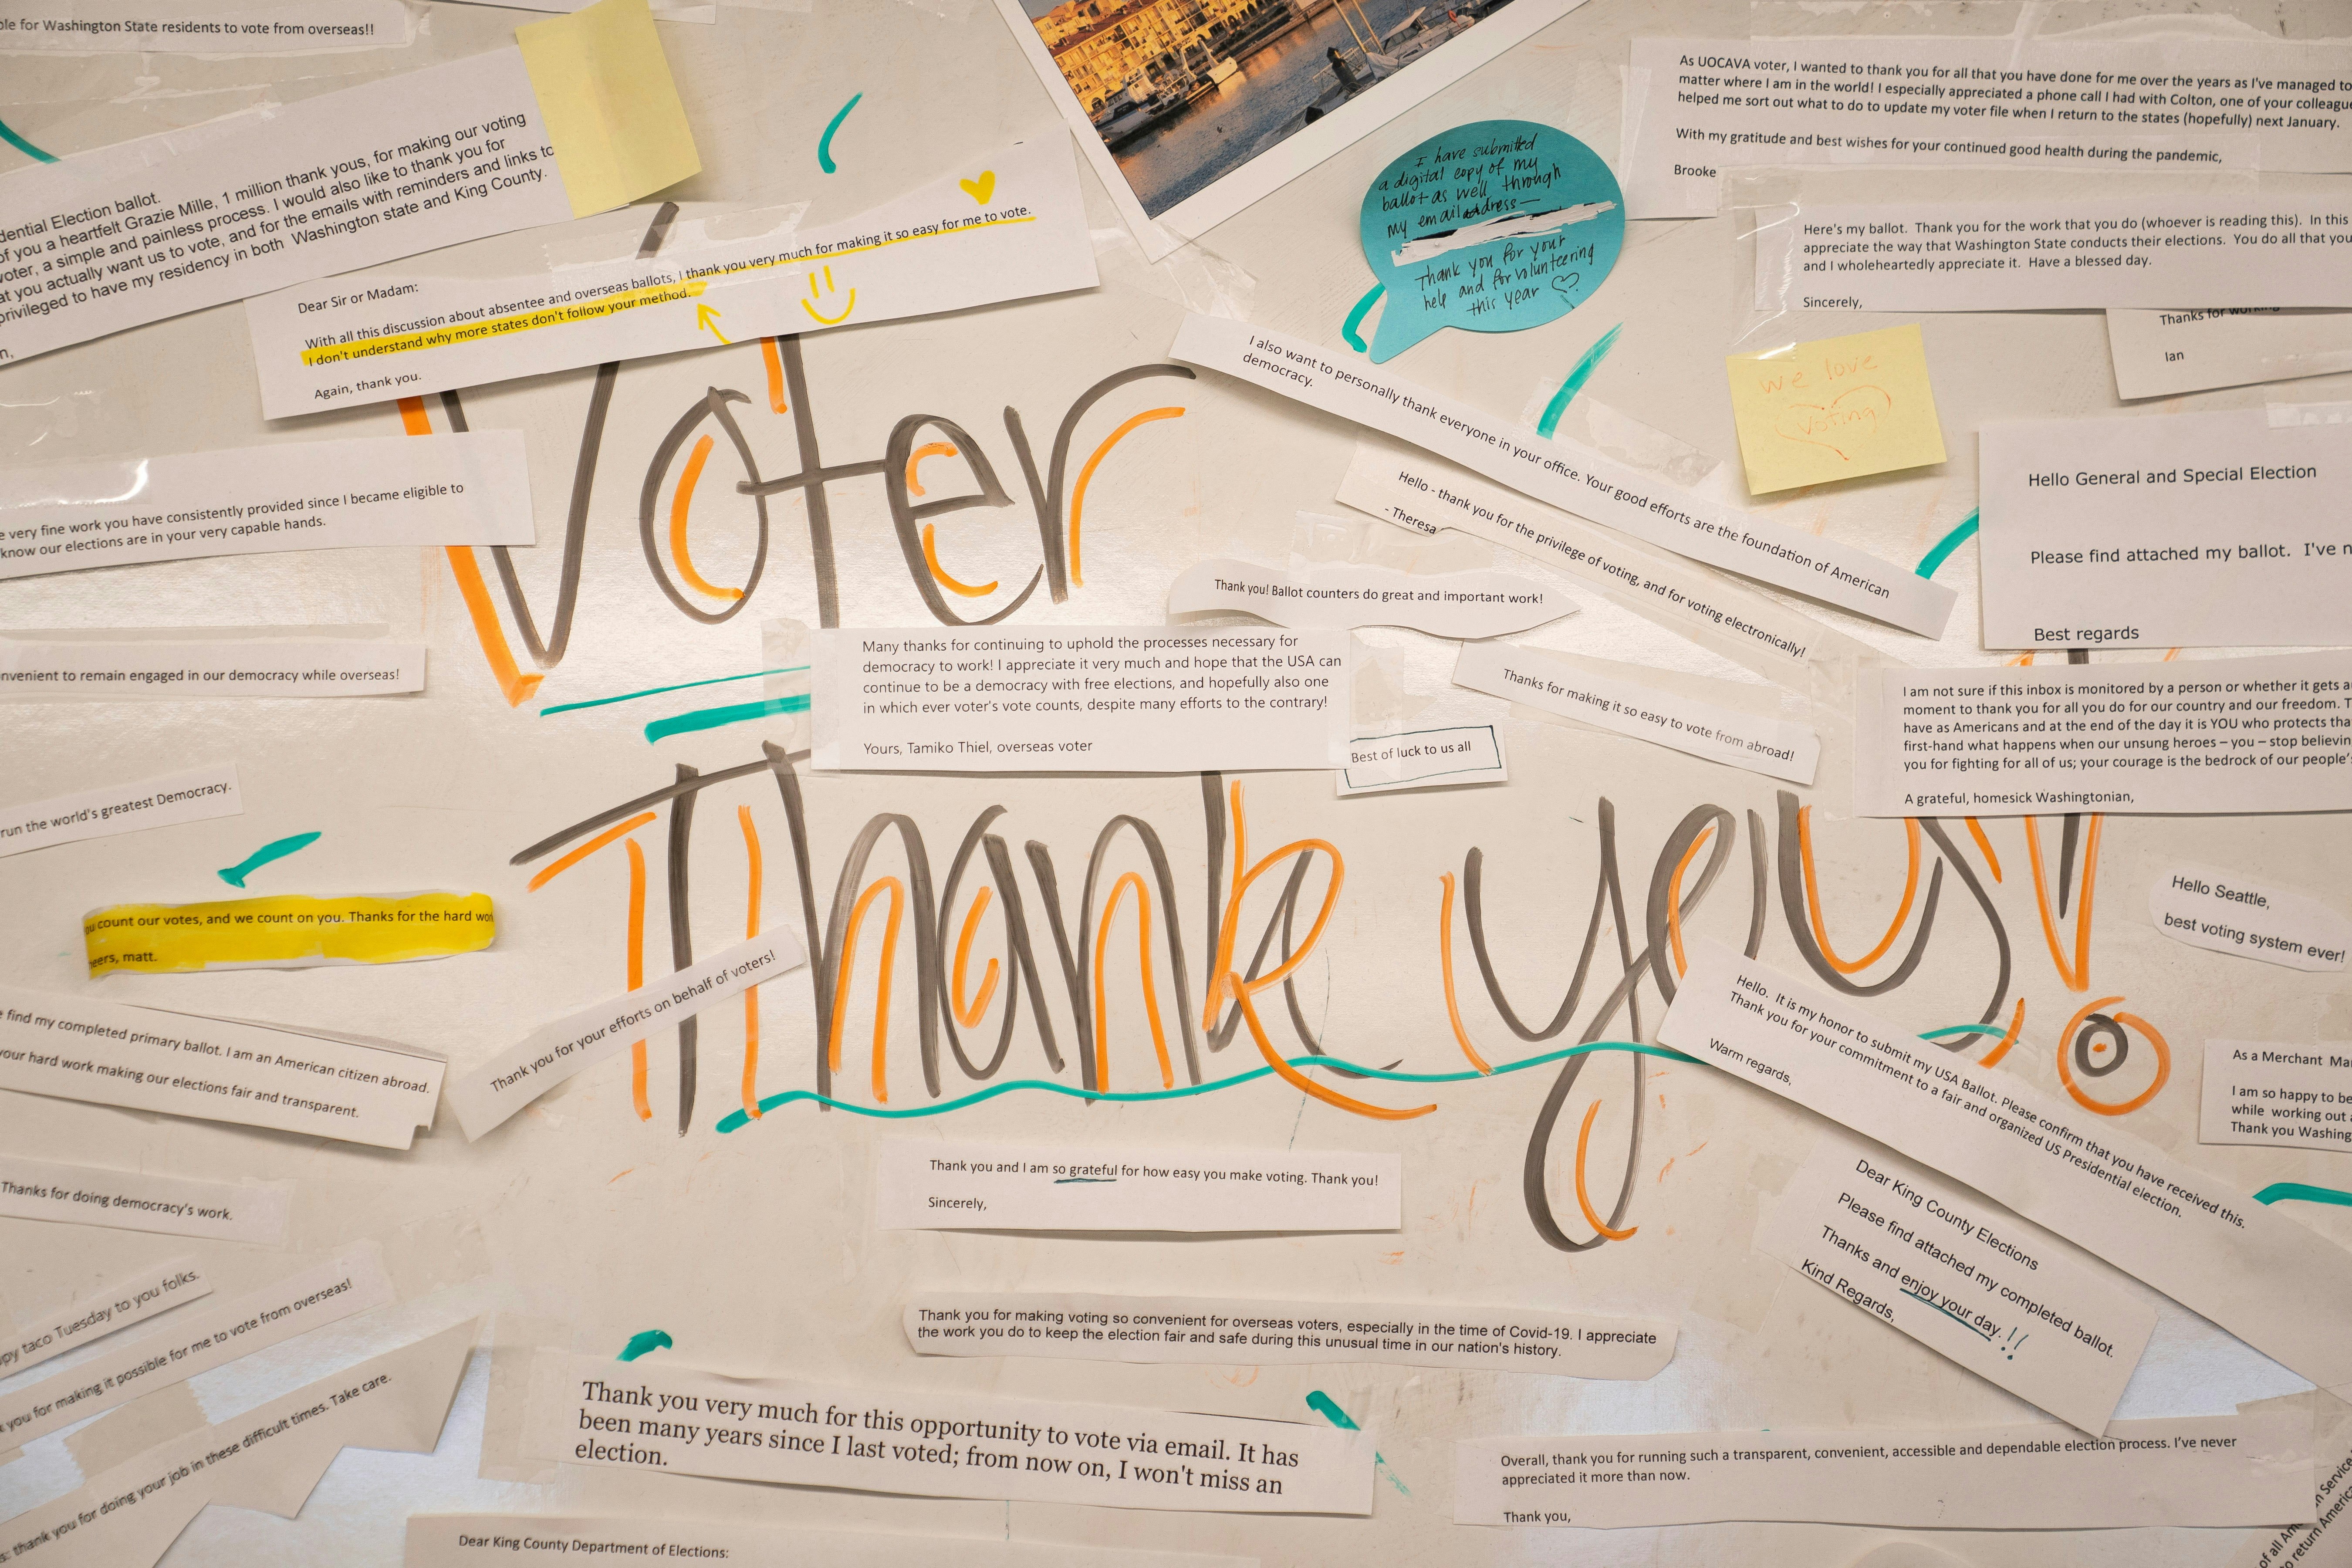 ble for Washington State residents to vote from overseas!!
dential Election ballot.
of you a heartfelt Grazie Mille, 1 million thank yous, for making our voting
voter, a simple and painless process. I would also like to thank you for
at you actually want us to vote, and for the emails with reminders and links to
privileged to have my residency in both Washington state and King County.
n,
Dear Sir or Madam:
With all this discussion about absentee and overseas ballots, I thank you very much for making it so easy for me to vote.
I don't understand why more states don't follow your method.
Again, thank you.
I have submitted
a digital copy of my
ballot as well through
my email address—
Thank you for your
help and for volunteering
this year ♡
As UOCAVA voter, I wanted to thank you for all that you have done for me over the years as I've managed to
matter where I am in the world! I especially appreciated a phone call I had with Colton, one of your colleagu
helped me sort out what to do to update my voter file when I return to the states (hopefully) next January.
With my gratitude and best wishes for your continued good health during the pandemic,
Brooke
Here's my ballot. Thank you for the work that you do (whoever is reading this). In this
appreciate the way that Washington State conducts their elections. You do all that you
and I wholeheartedly appreciate it. Have a blessed day.
Sincerely,
Thanks for working
Ian
we love
voting
I also want to personally thank everyone in your office. Your good efforts are the foundation of American
democracy.
Hello - thank you for the privilege of voting, and for voting electronically!
- Theresa
Hello General and Special Election
Please find attached my ballot. I've n
Best regards
Voter
e very fine work you have consistently provided since I became eligible to
know our elections are in your very capable hands.
Thank you! Ballot counters do great and important work!
Many thanks for continuing to uphold the processes necessary for
democracy to work! I appreciate it very much and hope that the USA can
continue to be a democracy with free elections, and hopefully also one
in which ever voter's vote counts, despite many efforts to the contrary!
Yours, Tamiko Thiel, overseas voter
Best of luck to us all
Thanks for making it so easy to vote from abroad!
nvenient to remain engaged in our democracy while overseas!
I am not sure if this inbox is monitored by a person or whether it gets a
moment to thank you for all you do for our country and our freedom. T
have as Americans and at the end of the day it is YOU who protects tha
first-hand what happens when our unsung heroes – you – stop believin
you for fighting for all of us; your courage is the bedrock of our people's
A grateful, homesick Washingtonian,
run the world's greatest Democracy.
Thank yous!
ou count our votes, and we count on you. Thanks for the hard wor
heers, matt.
Hello Seattle,
best voting system ever!
Thank you for your efforts on behalf of voters!
e find my completed primary ballot. I am an American citizen abroad.
your hard work making our elections fair and transparent.
Hello. It is my honor to submit my USA Ballot. Please confirm that you have received this.
Thank you for your commitment to a fair and organized US Presidential election.
Warm regards,
As a Merchant Ma
I am so happy to be
while working out
Thank you Washing
Thank you and I am so grateful for how easy you make voting. Thank you!
Sincerely,
Dear King County Elections
Please find attached my completed ballot.
Thanks and enjoy your day. !!
Kind Regards,
Thanks for doing democracy's work.
py taco Tuesday to you folks.
you for making it possible for me to vote from overseas!
s: thank you for doing your job in these difficult times. Take care.
Thank you for making voting so convenient for overseas voters, especially in the time of Covid-19. I appreciate
the work you do to keep the election fair and safe during this unusual time in our nation's history.
Thank you very much for this opportunity to vote via email. It has
been many years since I last voted; from now on, I won't miss an
election.
Overall, thank you for running such a transparent, convenient, accessible and dependable election process. I've never
appreciated it more than now.
Thank you,
Dear King County Department of Elections:
n Service
of all Am
to return America